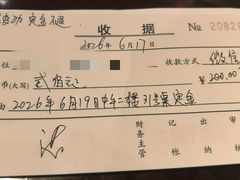 活动 定金不退
收 据 № 20828
2026年6月17日
位 收款方式 微信
币(大写) 贰佰元 ¥ 200.00
由 2026年6月19日中午二楼31桌定金
财务主管 记帐 出纳 审核